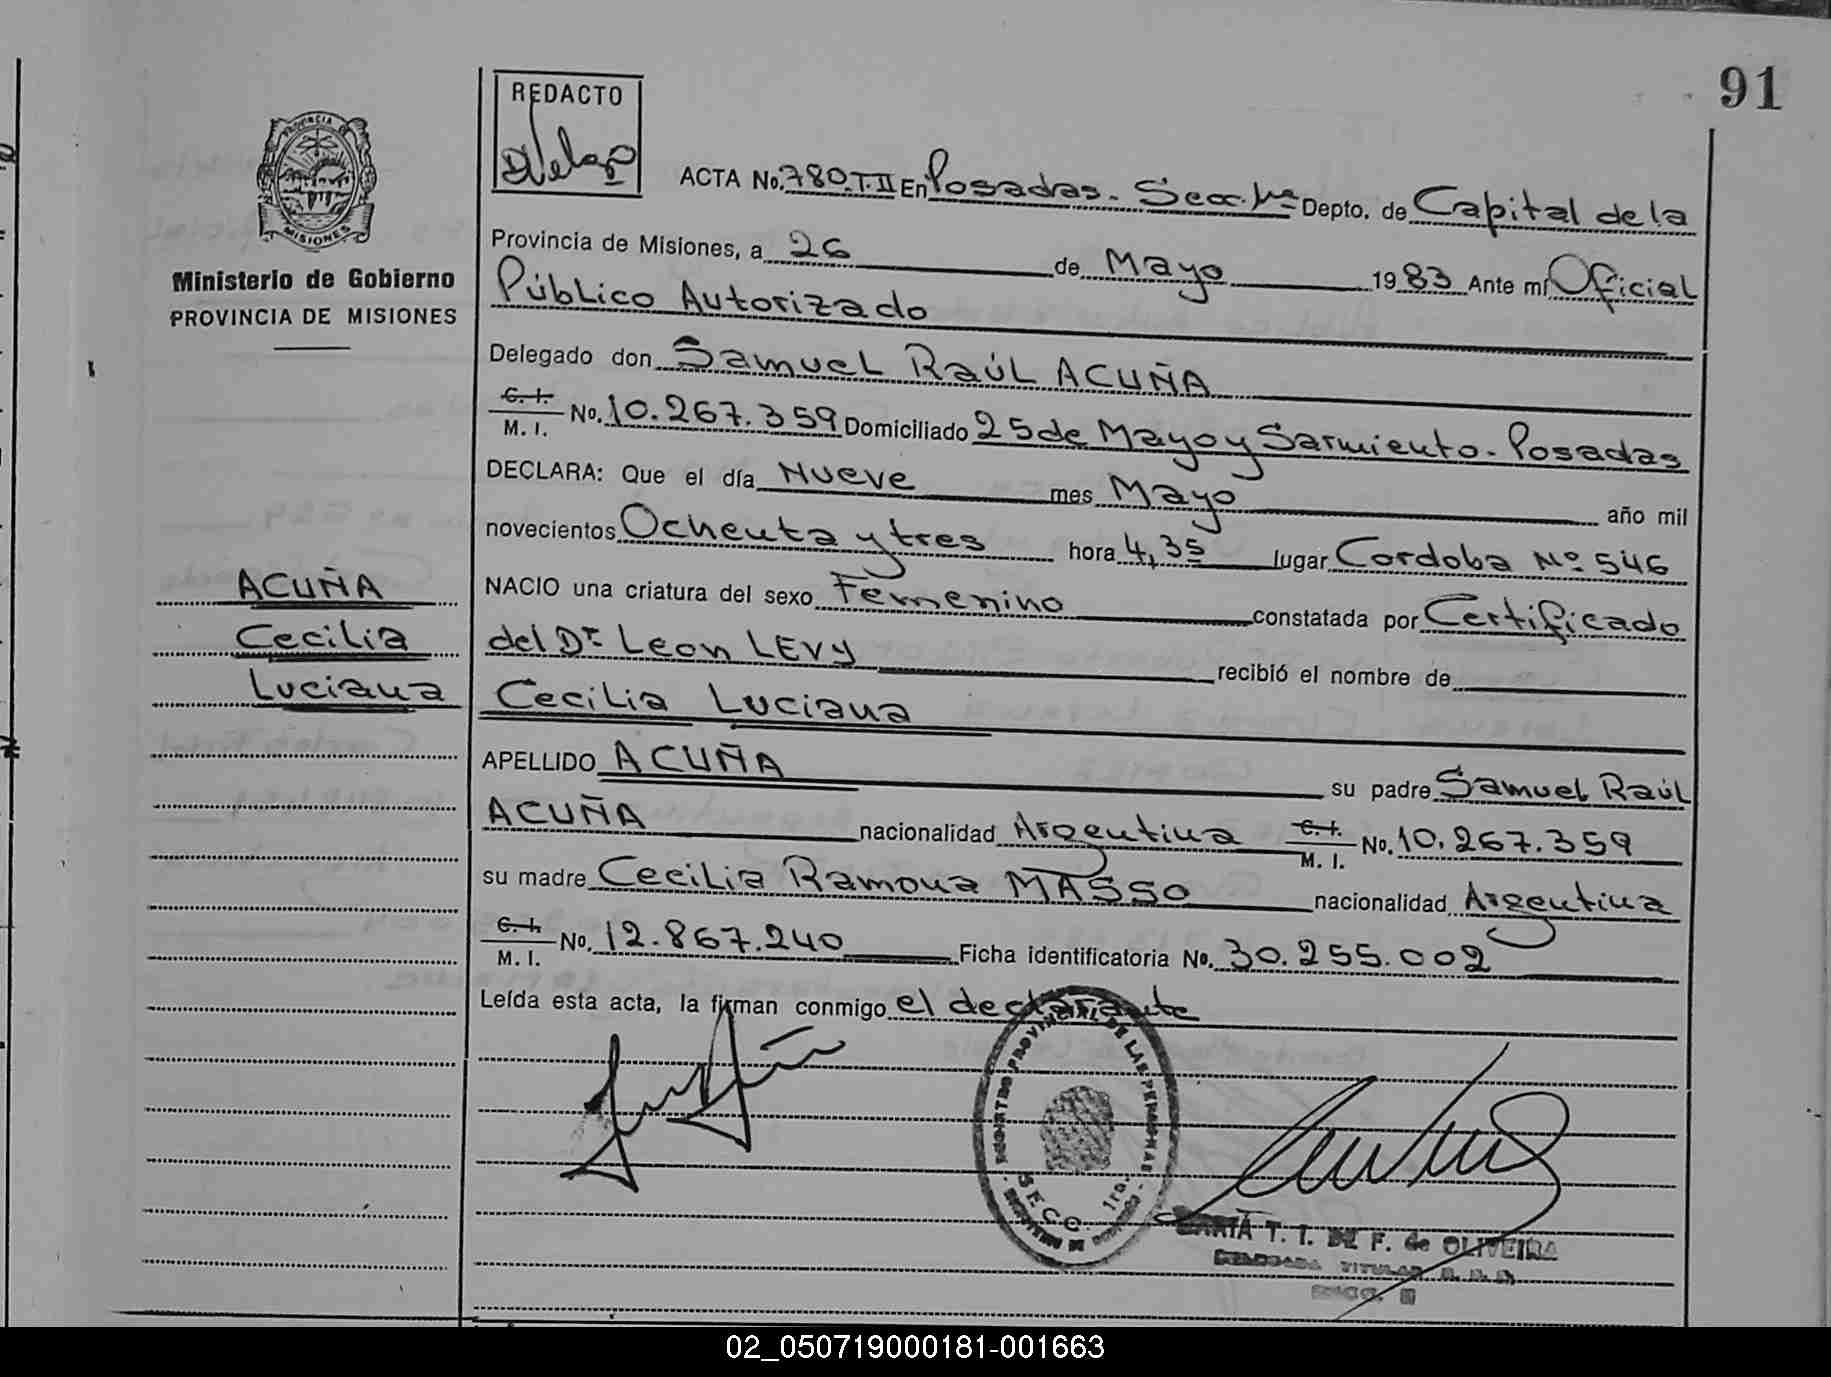 91
REDACTO
PROVINCIA DE
MISIONES
Ministerio de Gobierno
PROVINCIA DE MISIONES
ACTA No. 780.T.II En Posadas. Secc. 1ª Depto. de Capital de la
Provincia de Misiones, a 26 de Mayo 1983 Ante mí Oficial
Público Autorizado
Delegado don Samuel Raúl ACUÑA
C. I.
M. I. No. 10.267.359 Domiciliado 25 de Mayo y Sarmiento. Posadas
DECLARA: Que el día Nueve mes Mayo año mil
novecientos Ochenta y tres hora 4,35 lugar Cordoba Nº 546
NACIO una criatura del sexo Femenino constatada por Certificado
del Dr. Leon LEVY recibió el nombre de
Cecilia Luciana
APELLIDO ACUÑA su padre Samuel Raúl
ACUÑA nacionalidad Argentina C. I.
M. I. No. 10.267.359
su madre Cecilia Ramona MASSO nacionalidad Argentina
C. I.
M. I. No. 12.867.240 Ficha identificatoria No. 30.255.002
Leída esta acta, la firman conmigo el declarante
ACUÑA
Cecilia
Luciana
REGISTRO PROVINCIAL DE LAS PERSONAS
SECC. 1ra.
MARIA T. I. DE F. de OLIVEIRA
DELEGADA TITULAR
02_050719000181-001663